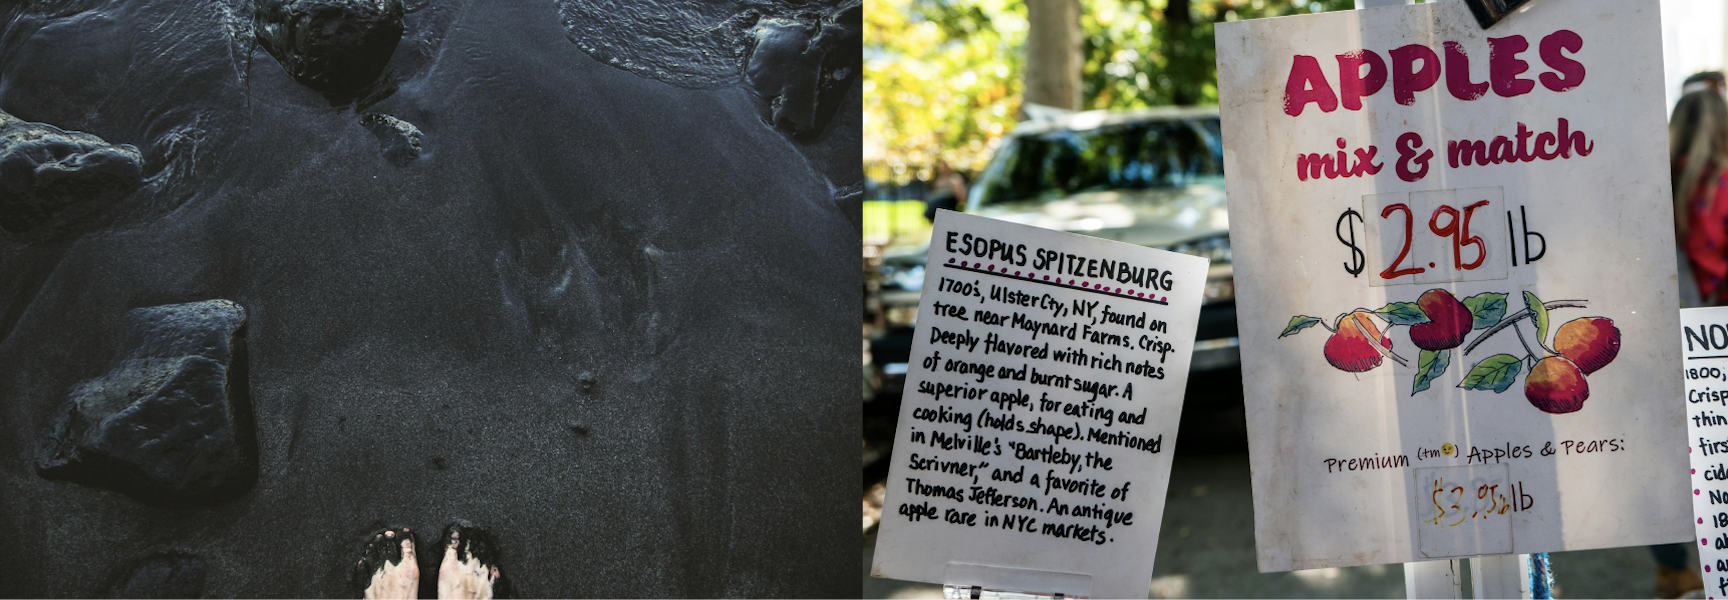 ESOPUS SPITZENBURG
1700's, Ulster Cty, NY, found on
tree near Maynard Farms. Crisp.
Deeply flavored with rich notes
of orange and burnt sugar. A
superior apple, for eating and
cooking (holds shape). Mentioned
in Melville's "Bartleby, the
Scrivner," and a favorite of
Thomas Jefferson. An antique
apple rare in NYC markets.
APPLES
mix & match
$2.95 lb
Premium (tm) Apples & Pears:
$3.95 lb
NO
1800,
Crisp
thin
firs
cid
No
18